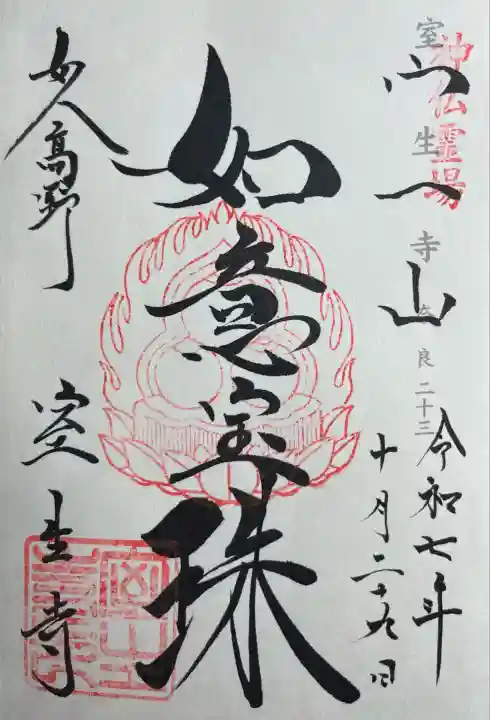 神仏霊場
室生寺 奈良二十三
宀一山
令和七年
十月二十九日
如意宝珠
女人高野
室生寺